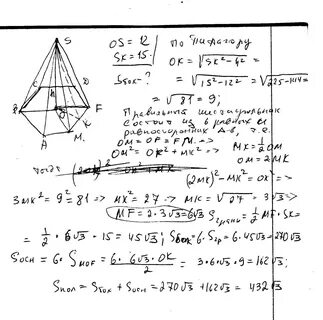 S
OS = 12
SK = 15.
Sбок - ?
По Пифагору
OK = √SK² - h² =
= √15² - 12² = √225 - 144 =
= √81 = 9;
C D
B O F
A M K
Правильный шестиугольник
состоит из 6 равных
равносторонних Δ-в, т.е.
OM = OF = FM. => MK = ½ OM
Тогда OM² = OK² + MK² => OM = 2MK
(2MK)² - MK² = OK² =>
3MK² = 9² = 81 => MK² = 27 => MK = √27 = 3√3 =>
MF = 2·3√3 = 6√3 Sграни = ½ MF·SK =
= ½ · 6√3 · 15 = 45√3; Sбок = 6·Sгр = 6·45√3 = 270√3
Sосн = 6·SMOF = 6·6√3·OK / 2 = 3·6√3·9 = 162√3;
Sпол = Sбок + Sосн = 270√3 + 162√3 = 432√3